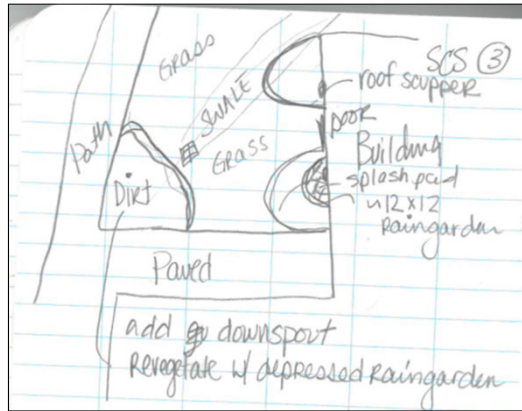 GRASS
SCS ③
roof scupper
SWALE
DOOR
Path
GRASS
Building
splash pad
Dirt
12x12
Raingarden
Paved
add downspout
Revegetate w/ depressed Raingarden